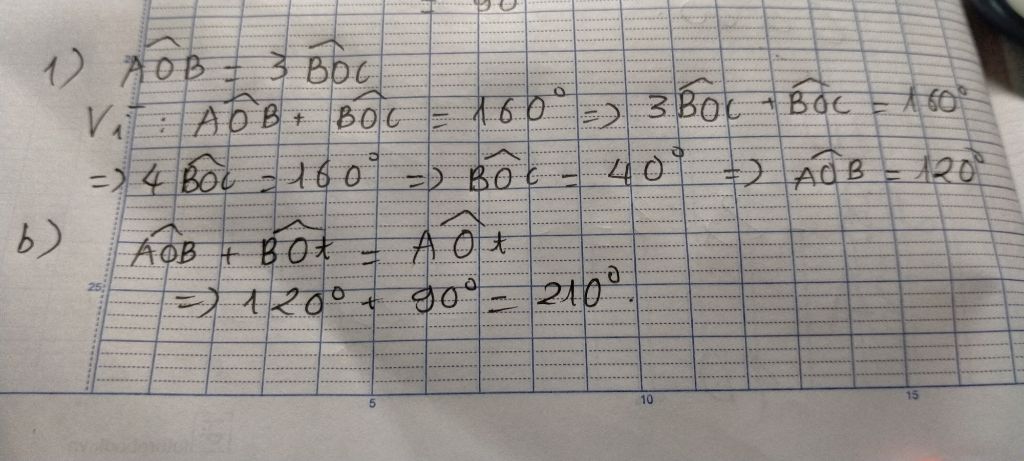 = 90
1) AÔB = 3 BÔC
Vì : AÔB + BÔC = 160° => 3 BÔC + BÔC = 160°
=> 4 BÔC = 160° => BÔC = 40° => AÔB = 120°
b) AÔB + BÔt = AÔt
25
=> 120° + 90° = 210°.
5 10 15